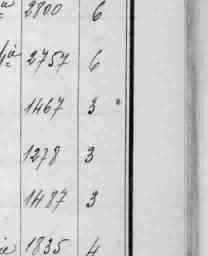 2800 6
2757 6
1467 3
1278 3
1487 3
1835 4